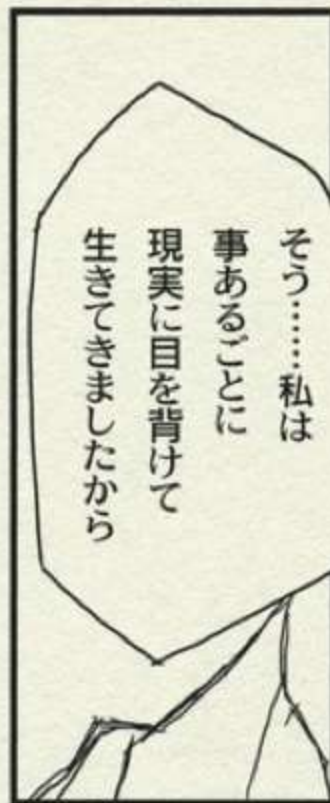 そう……私は
事あるごとに
現実に目を背けて
生きてきましたから